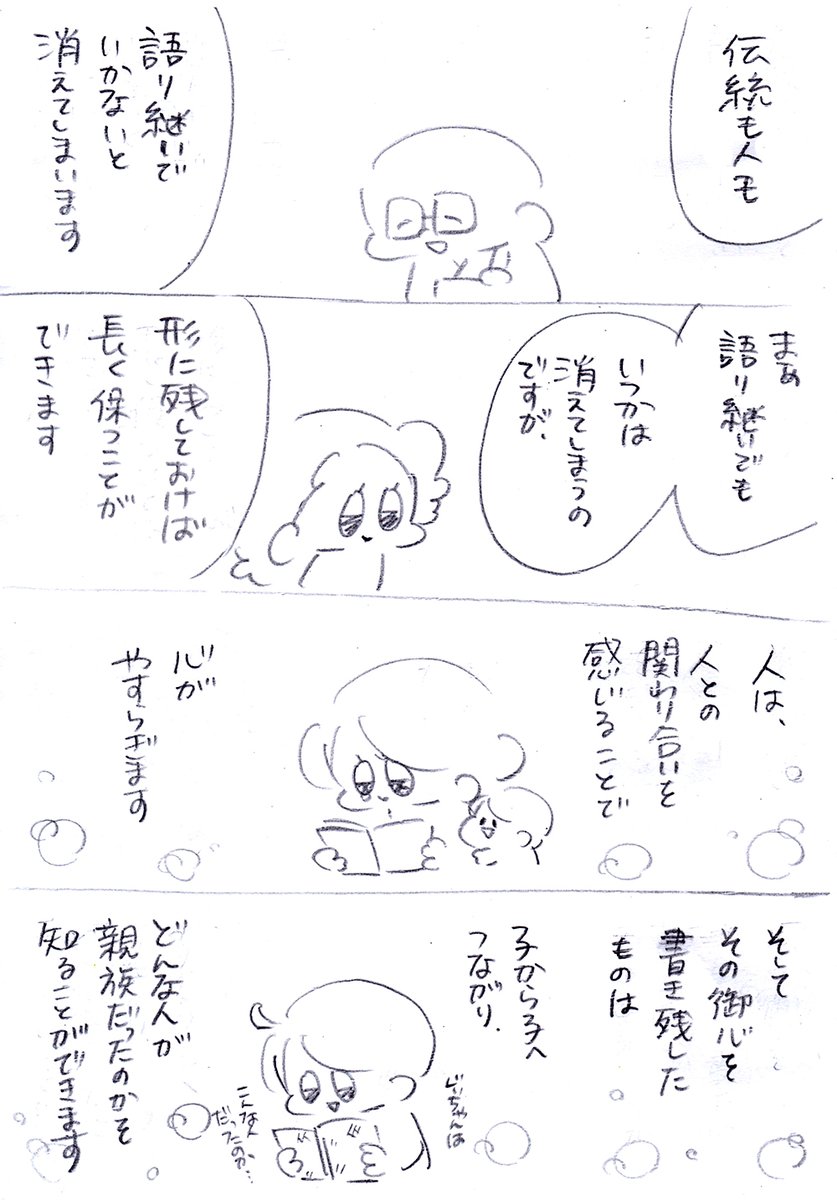 伝統も人も
語り継いで
いかないと
消えてしまいます
まぁ
語り継いでも
いつかは
消えてしまうの
ですが、
形に残しておけば
長く保つことが
できます
人は、
人との
関わり合いを
感じることで
心が
やすらぎます
そして
その御心を
書き残した
ものは
子から子へ
つながり、
どんな人が
親族だったのかを
知ることができます
じいちゃんは
こんな人
だったのか…